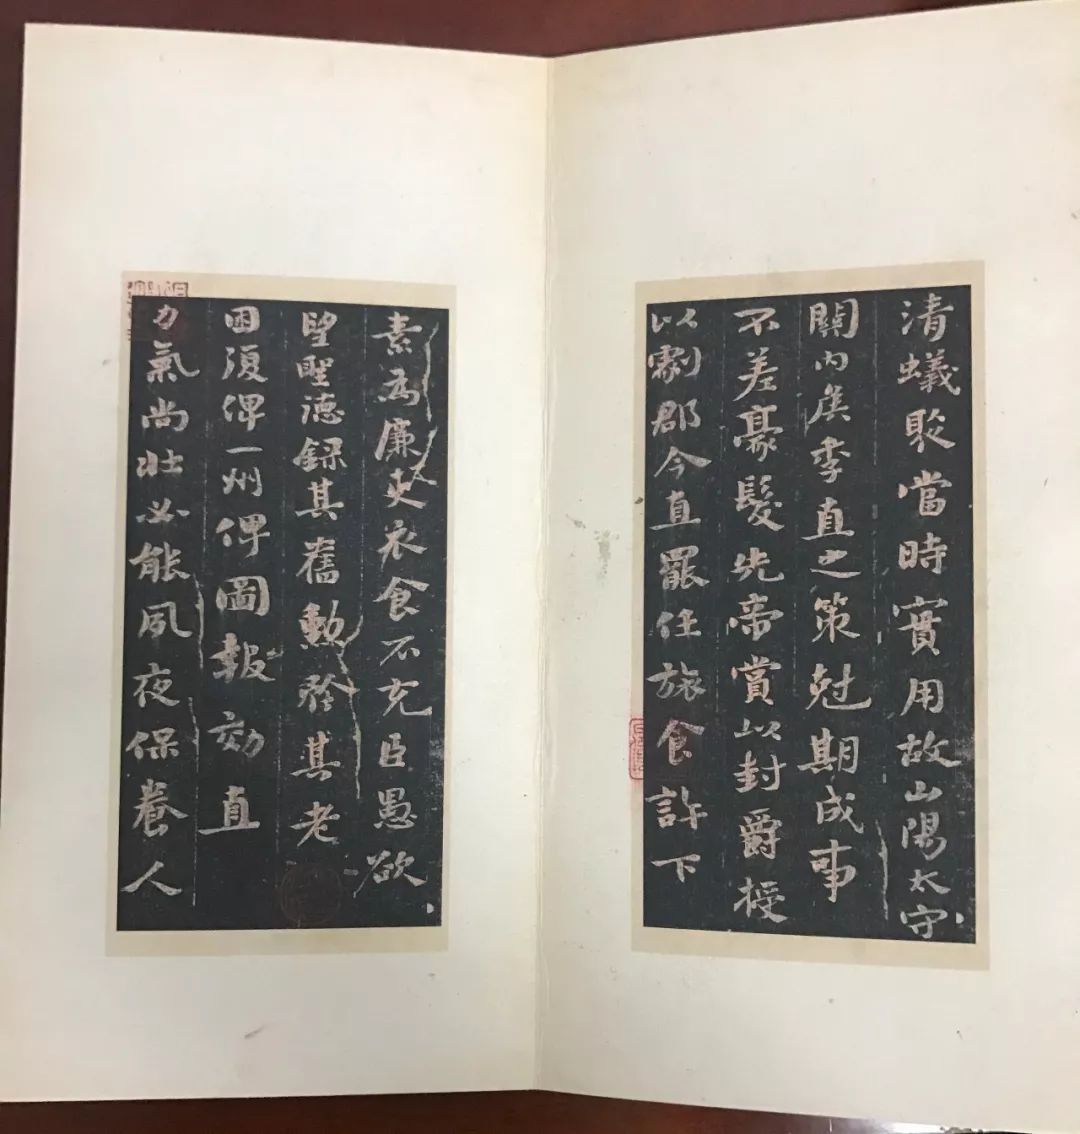 清蟻聚當時實用故山陽太守
關內侯季直之策尅期成事
不差豪髮先帝賞以封爵授
以劇郡今直罷任旅食許下
素為廉吏衣食不充臣愚欲
望聖德錄其舊勳矜其老
困復俾一州俾圖報効直
力氣尚壯必能夙夜保養人